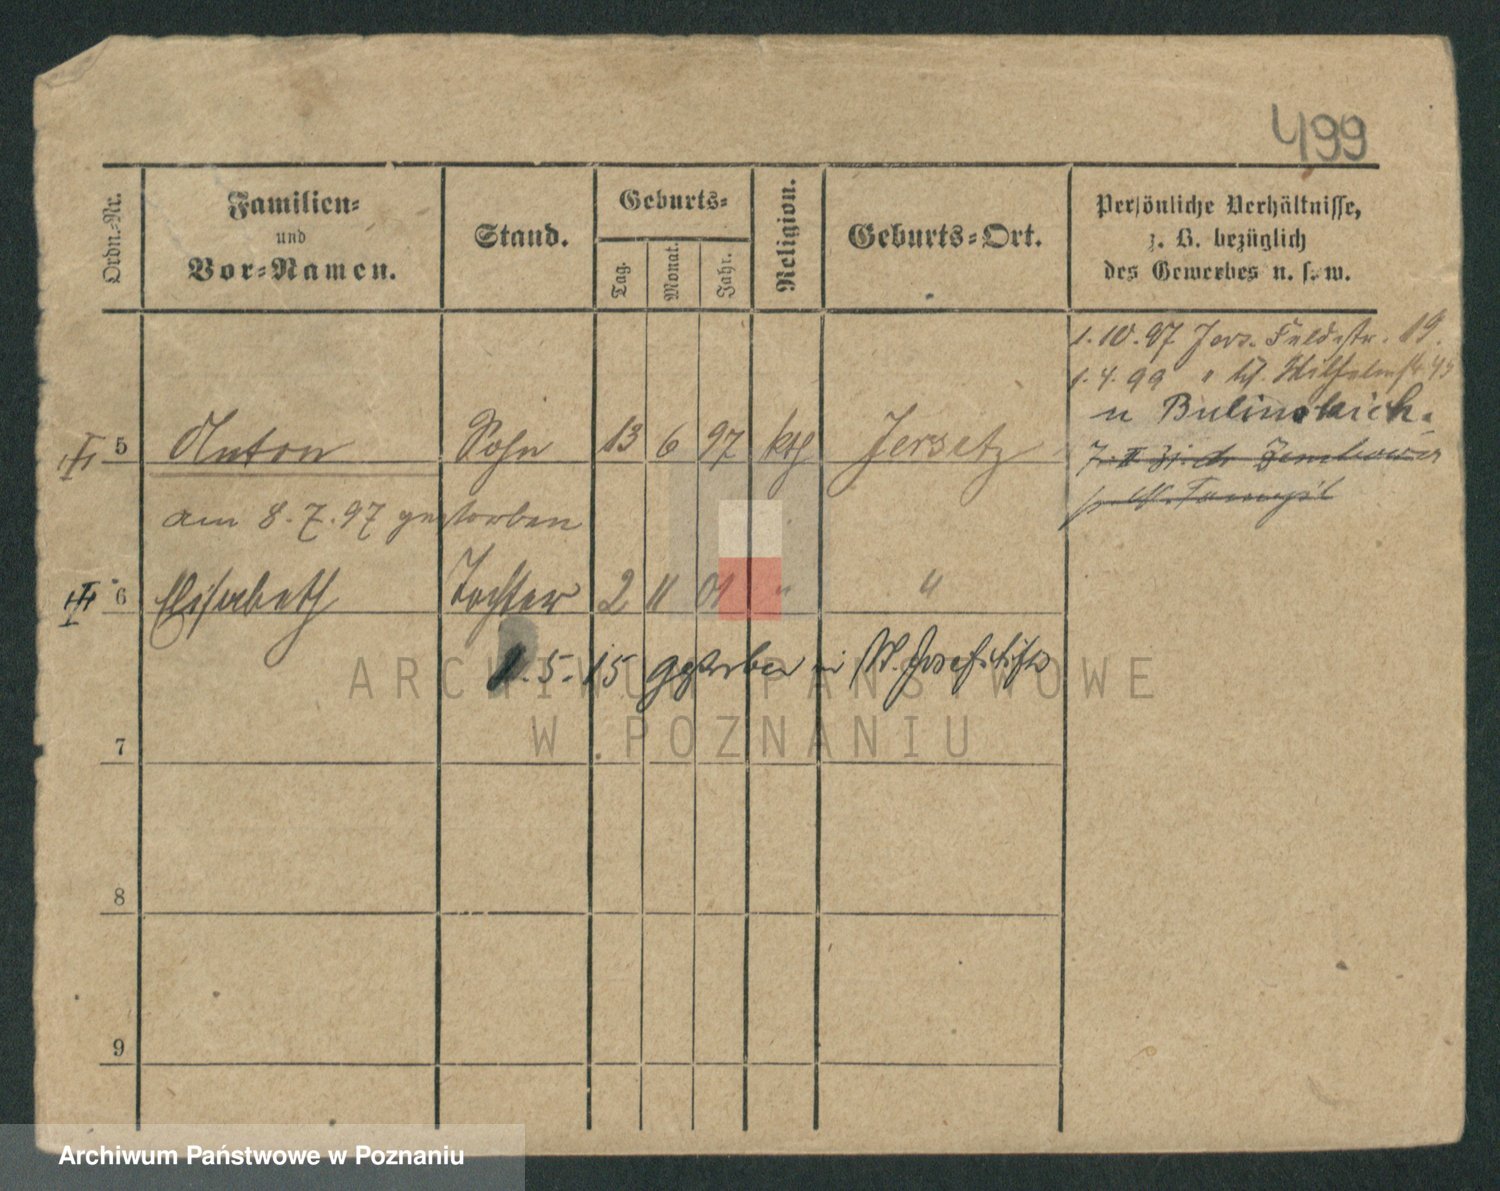 499
Ordn.-Nr.
Familien-
und
Vor-Namen.
Stand.
Geburts-
Tag.
Monat.
Jahr.
Religion.
Geburts-Ort.
Persönliche Verhältnisse,
z. B. bezüglich
des Gewerbes u. s. w.
1.10.97 Jers. Feldstr. 19.
1.4.99 " Wilhelmstr. 45
n
5 Anton Sohn 13 6 97 kth Jersetz
am 8.7.97 gestorben
III 6 Elisabeth Tochter 2 11 01 " "
1.5.15 gestorben in Josefstift
ARCHIWUM PAŃSTWOWE
W POZNANIU
7
8
9
Archiwum Państwowe w Poznaniu